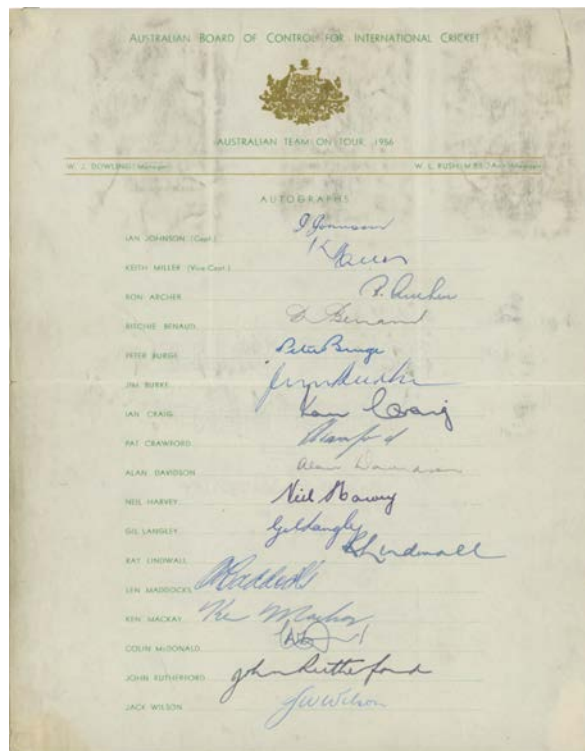 AUSTRALIAN BOARD OF CONTROL FOR INTERNATIONAL CRICKET
AUSTRALIAN TEAM ON TOUR, 1956
W. J. DOWLING (Manager) W. L. RUSH, M.B.E. (Asst. Manager)
AUTOGRAPHS
IAN JOHNSON (Capt.) I Johnson
KEITH MILLER (Vice-Capt.) K Miller
RON ARCHER R. Archer
RITCHIE BENAUD R Benaud
PETER BURGE Peter Burge
JIM BURKE Jim Burke
IAN CRAIG Ian Craig
PAT CRAWFORD
ALAN DAVIDSON Alan Davidson
NEIL HARVEY Neil Harvey
GIL LANGLEY Gil Langley
RAY LINDWALL R Lindwall
LEN MADDOCKS Maddocks
KEN MACKAY Ken Mackay
COLIN McDONALD
JOHN RUTHERFORD John Rutherford
JACK WILSON J W Wilson